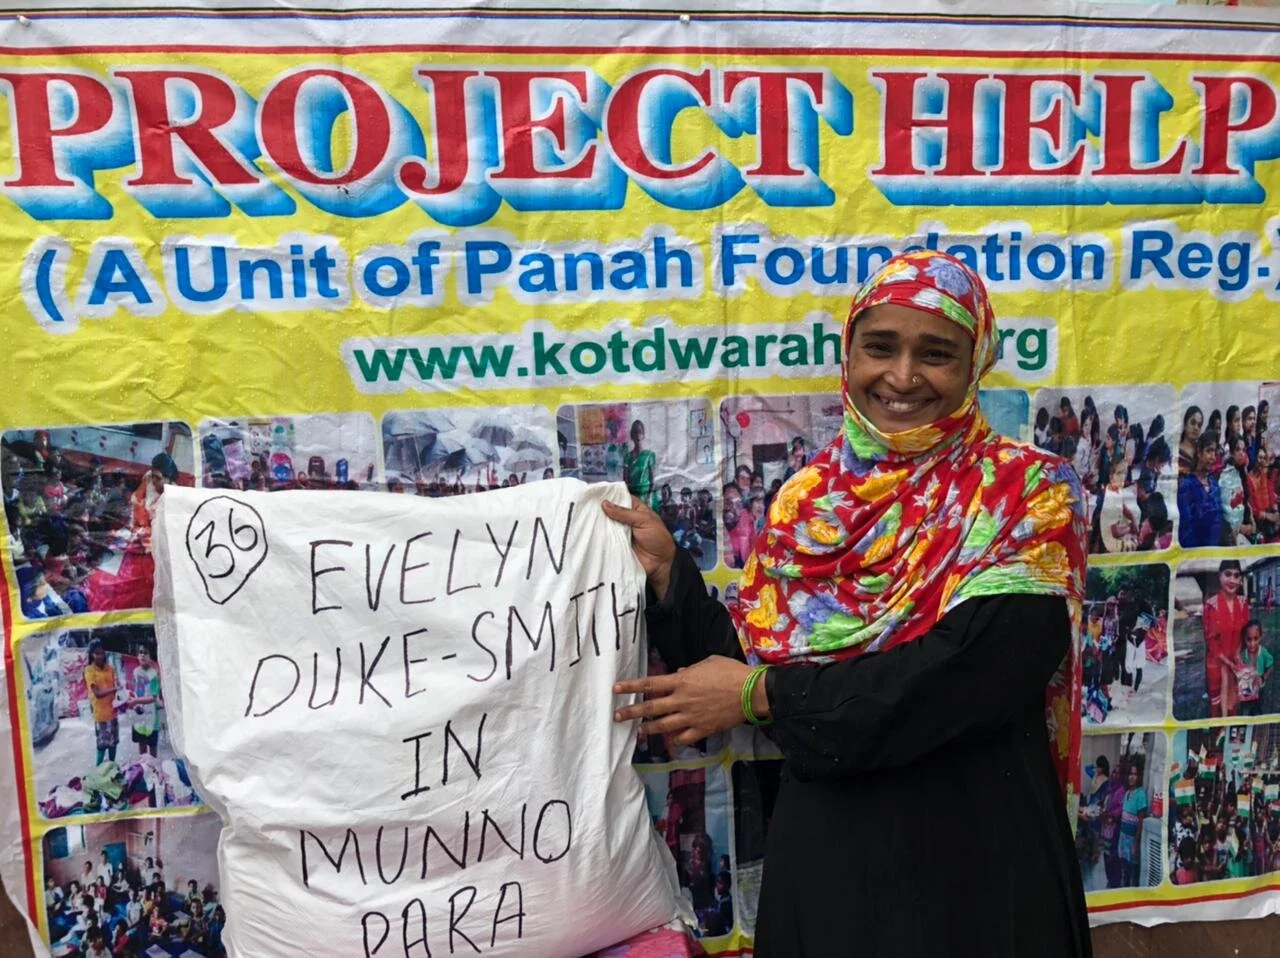 PROJECT HELP
( A Unit of Panah Foundation Reg.)
www.kotdwarah rg
36
EVELYN
DUKE-SMITH
IN
MUNNO
PARA